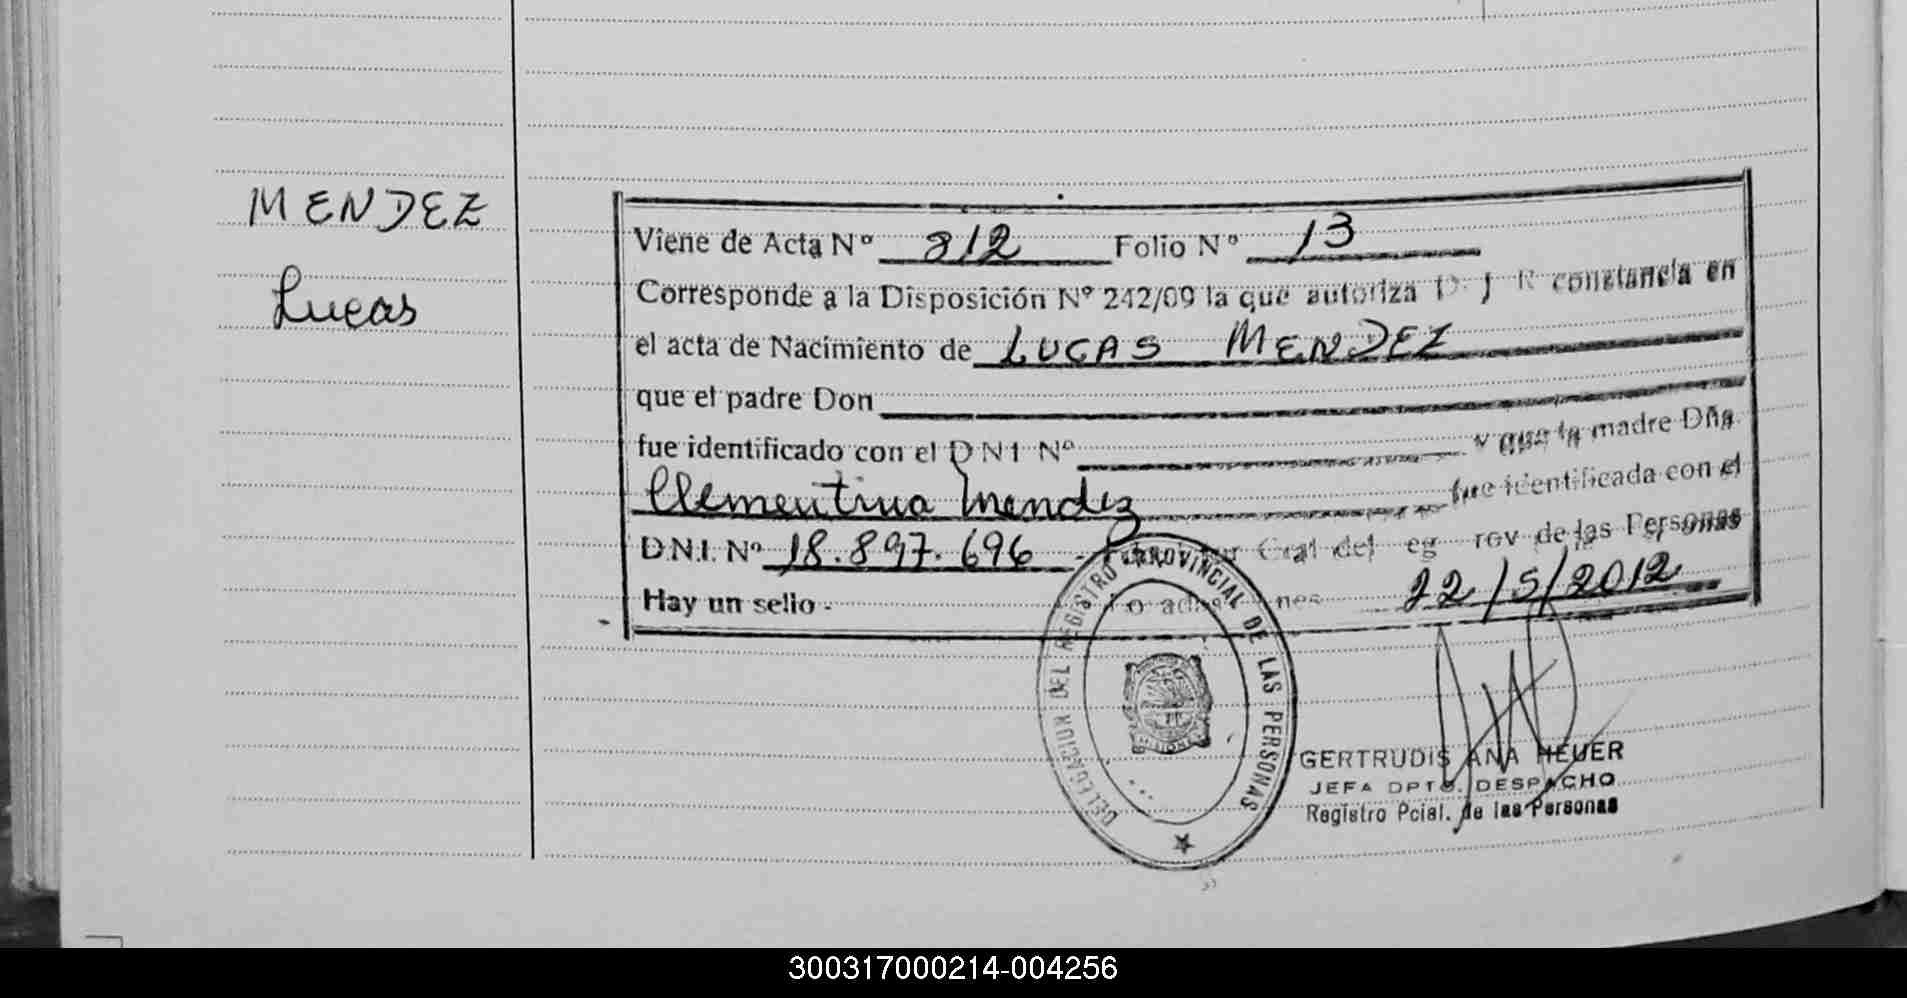 MENDEZ
Lucas
Viene de Acta Nº 812 Folio Nº 13
Corresponde a la Disposición Nº 242/09 la que autoriza D. J R constancia en
el acta de Nacimiento de LUCAS MENDEZ
que el padre Don
fue identificado con el D N I Nº y que la madre Dña.
Clementina Mendez fue identificada con el
D.N.I. Nº 18.897.696 Gral del eg rov de las Personas
Hay un sello. 22/5/2012
DELEGACION DEL REGISTRO PROVINCIAL DE LAS PERSONAS
MISIONES
GERTRUDIS ANA HEUER
JEFA DPTO. DESPACHO
Registro Pcial. de las Personas
300317000214-004256